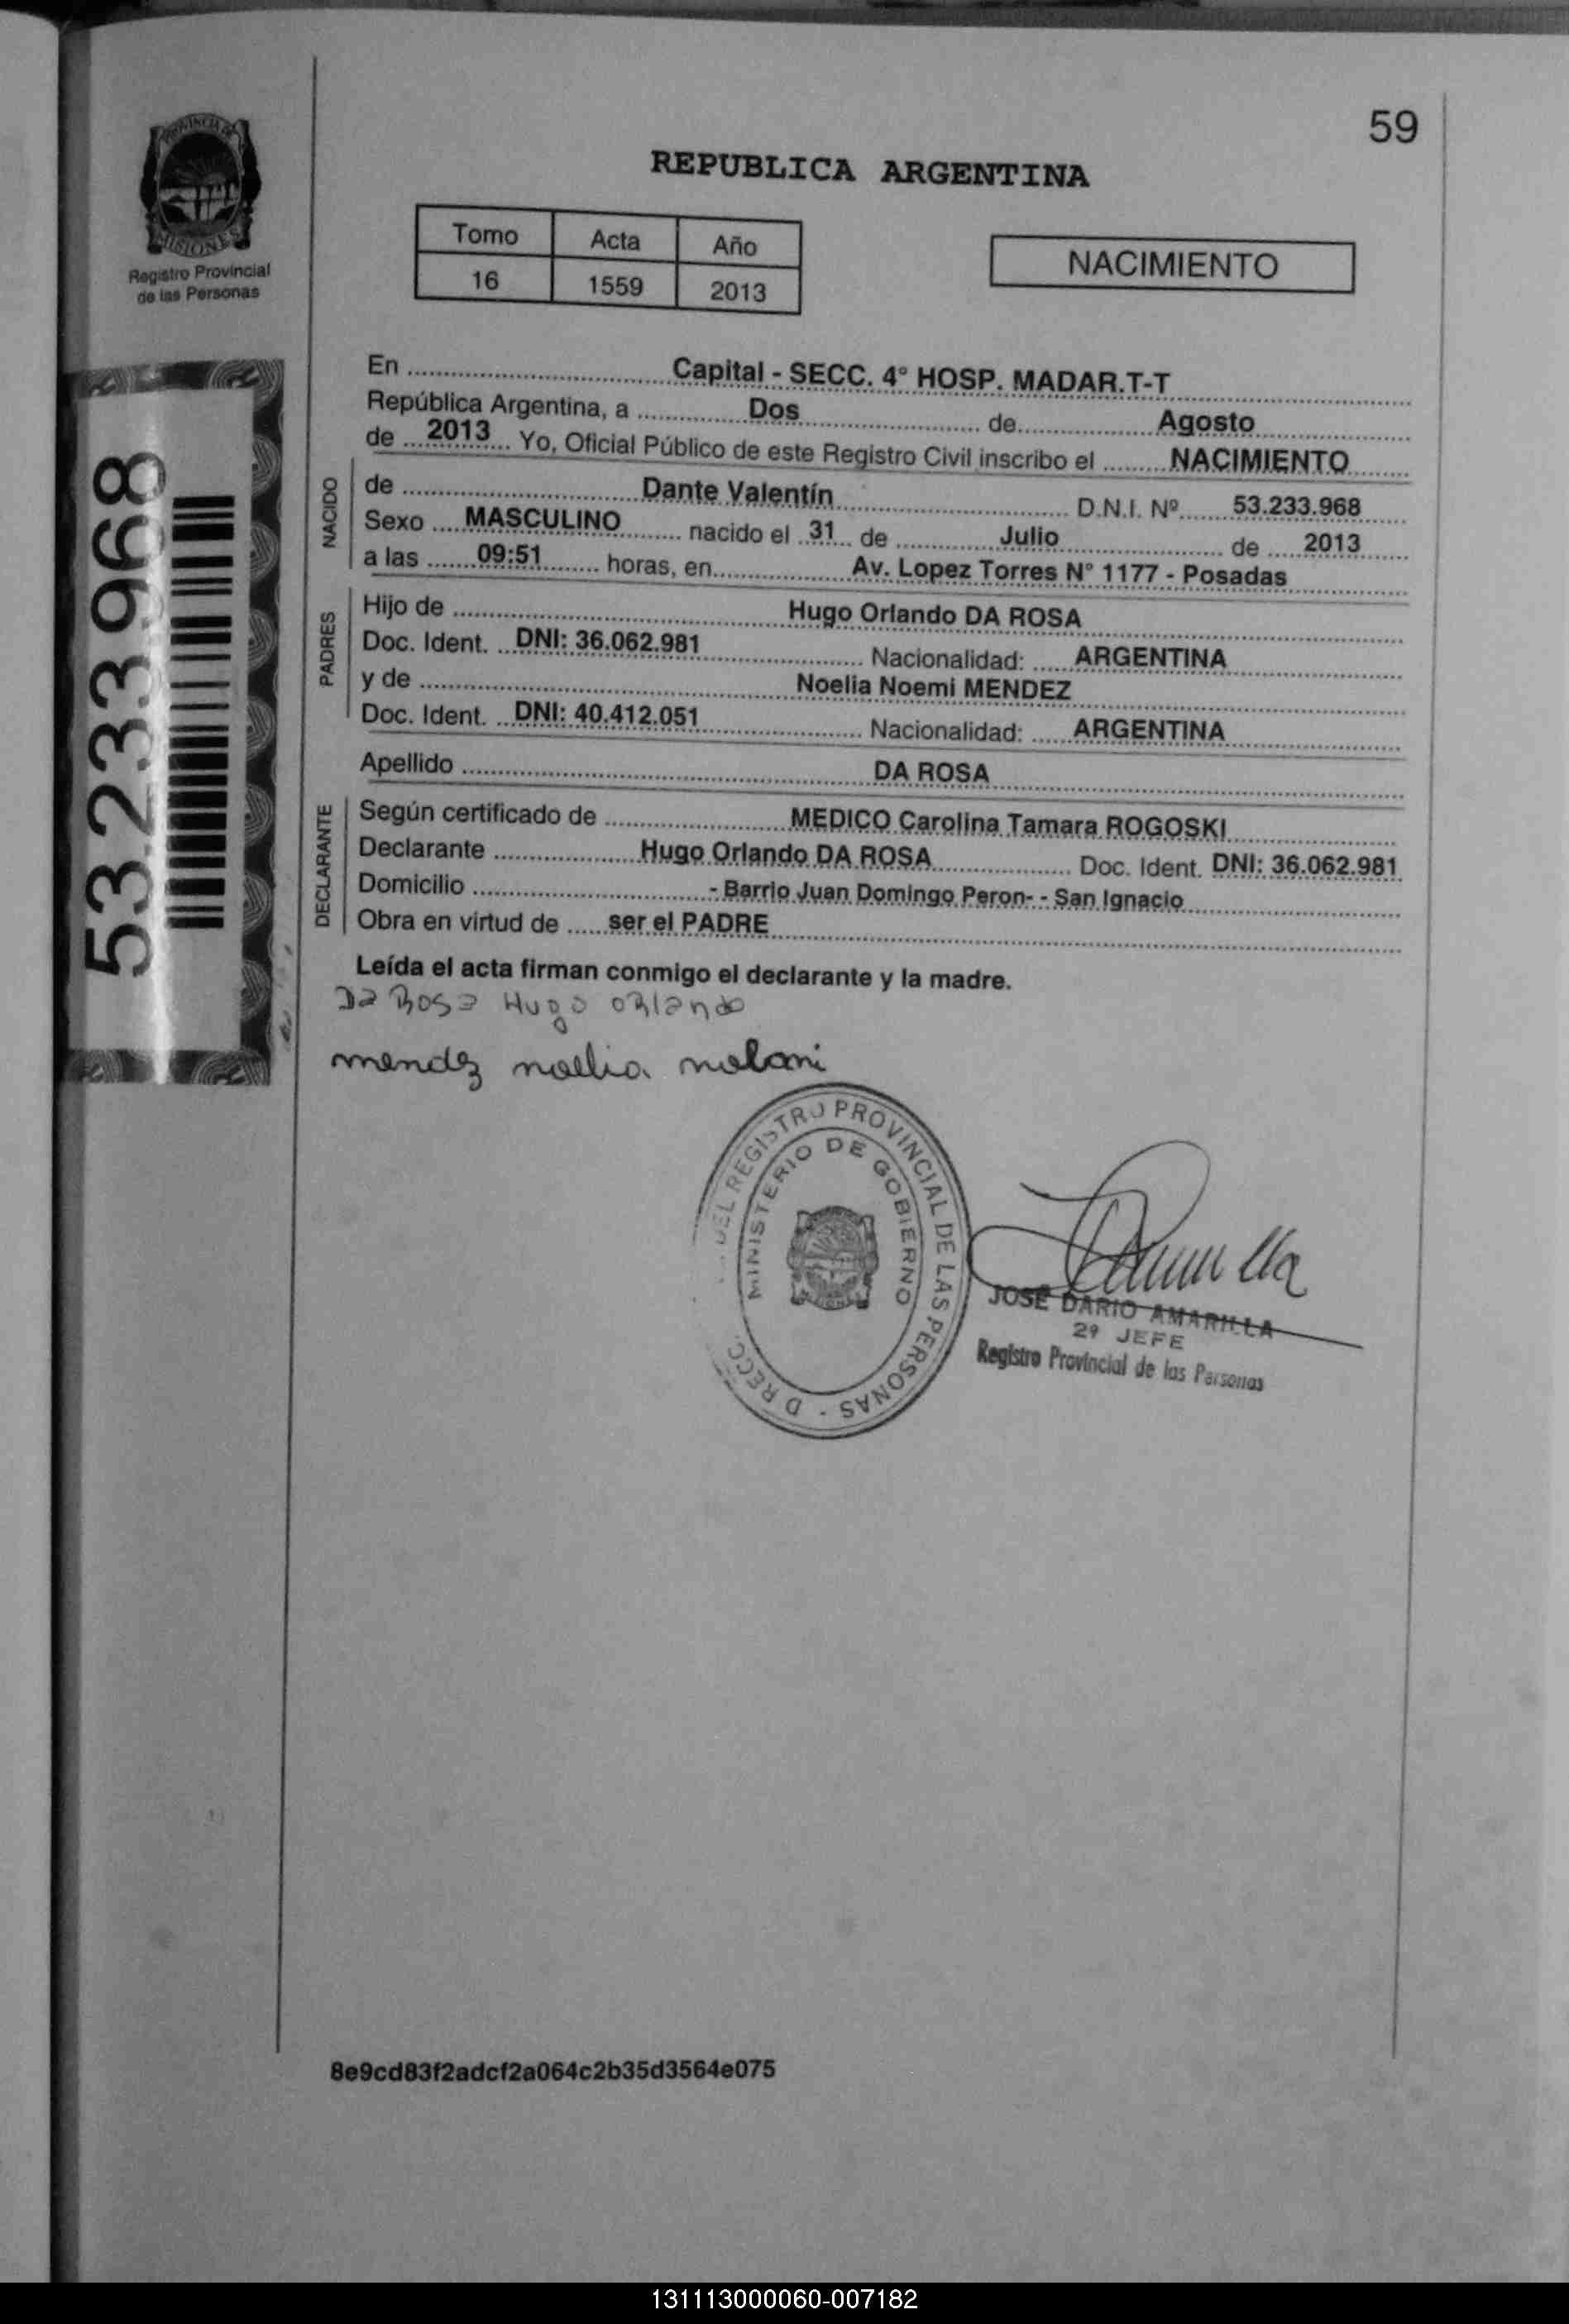 59
PROVINCIA DE
MISIONES
Registro Provincial
de las Personas
REPUBLICA ARGENTINA
Tomo Acta Año
16 1559 2013
NACIMIENTO
53.233.968
En Capital - SECC. 4° HOSP. MADAR.T-T
República Argentina, a Dos de Agosto
de 2013 Yo, Oficial Público de este Registro Civil inscribo el NACIMIENTO
NACIDO
de Dante Valentín D.N.I. Nº 53.233.968
Sexo MASCULINO nacido el 31 de Julio de 2013
a las 09:51 horas, en Av. Lopez Torres N° 1177 - Posadas
PADRES
Hijo de Hugo Orlando DA ROSA
Doc. Ident. DNI: 36.062.981 Nacionalidad: ARGENTINA
y de Noelia Noemi MENDEZ
Doc. Ident. DNI: 40.412.051 Nacionalidad: ARGENTINA
Apellido DA ROSA
DECLARANTE
Según certificado de MEDICO Carolina Tamara ROGOSKI
Declarante Hugo Orlando DA ROSA Doc. Ident. DNI: 36.062.981
Domicilio - Barrio Juan Domingo Peron- - San Ignacio
Obra en virtud de ser el PADRE
Leída el acta firman conmigo el declarante y la madre.
Da Rosa Hugo oRlando
mendez noelia
DEL REGISTRO PROVINCIAL DE LAS PERSONAS -
MINISTERIO DE GOBIERNO
JOSE DARIO AMARILLA
2º JEFE
Registro Provincial de las Personas
8e9cd83f2adcf2a064c2b35d3564e075
131113000060-007182